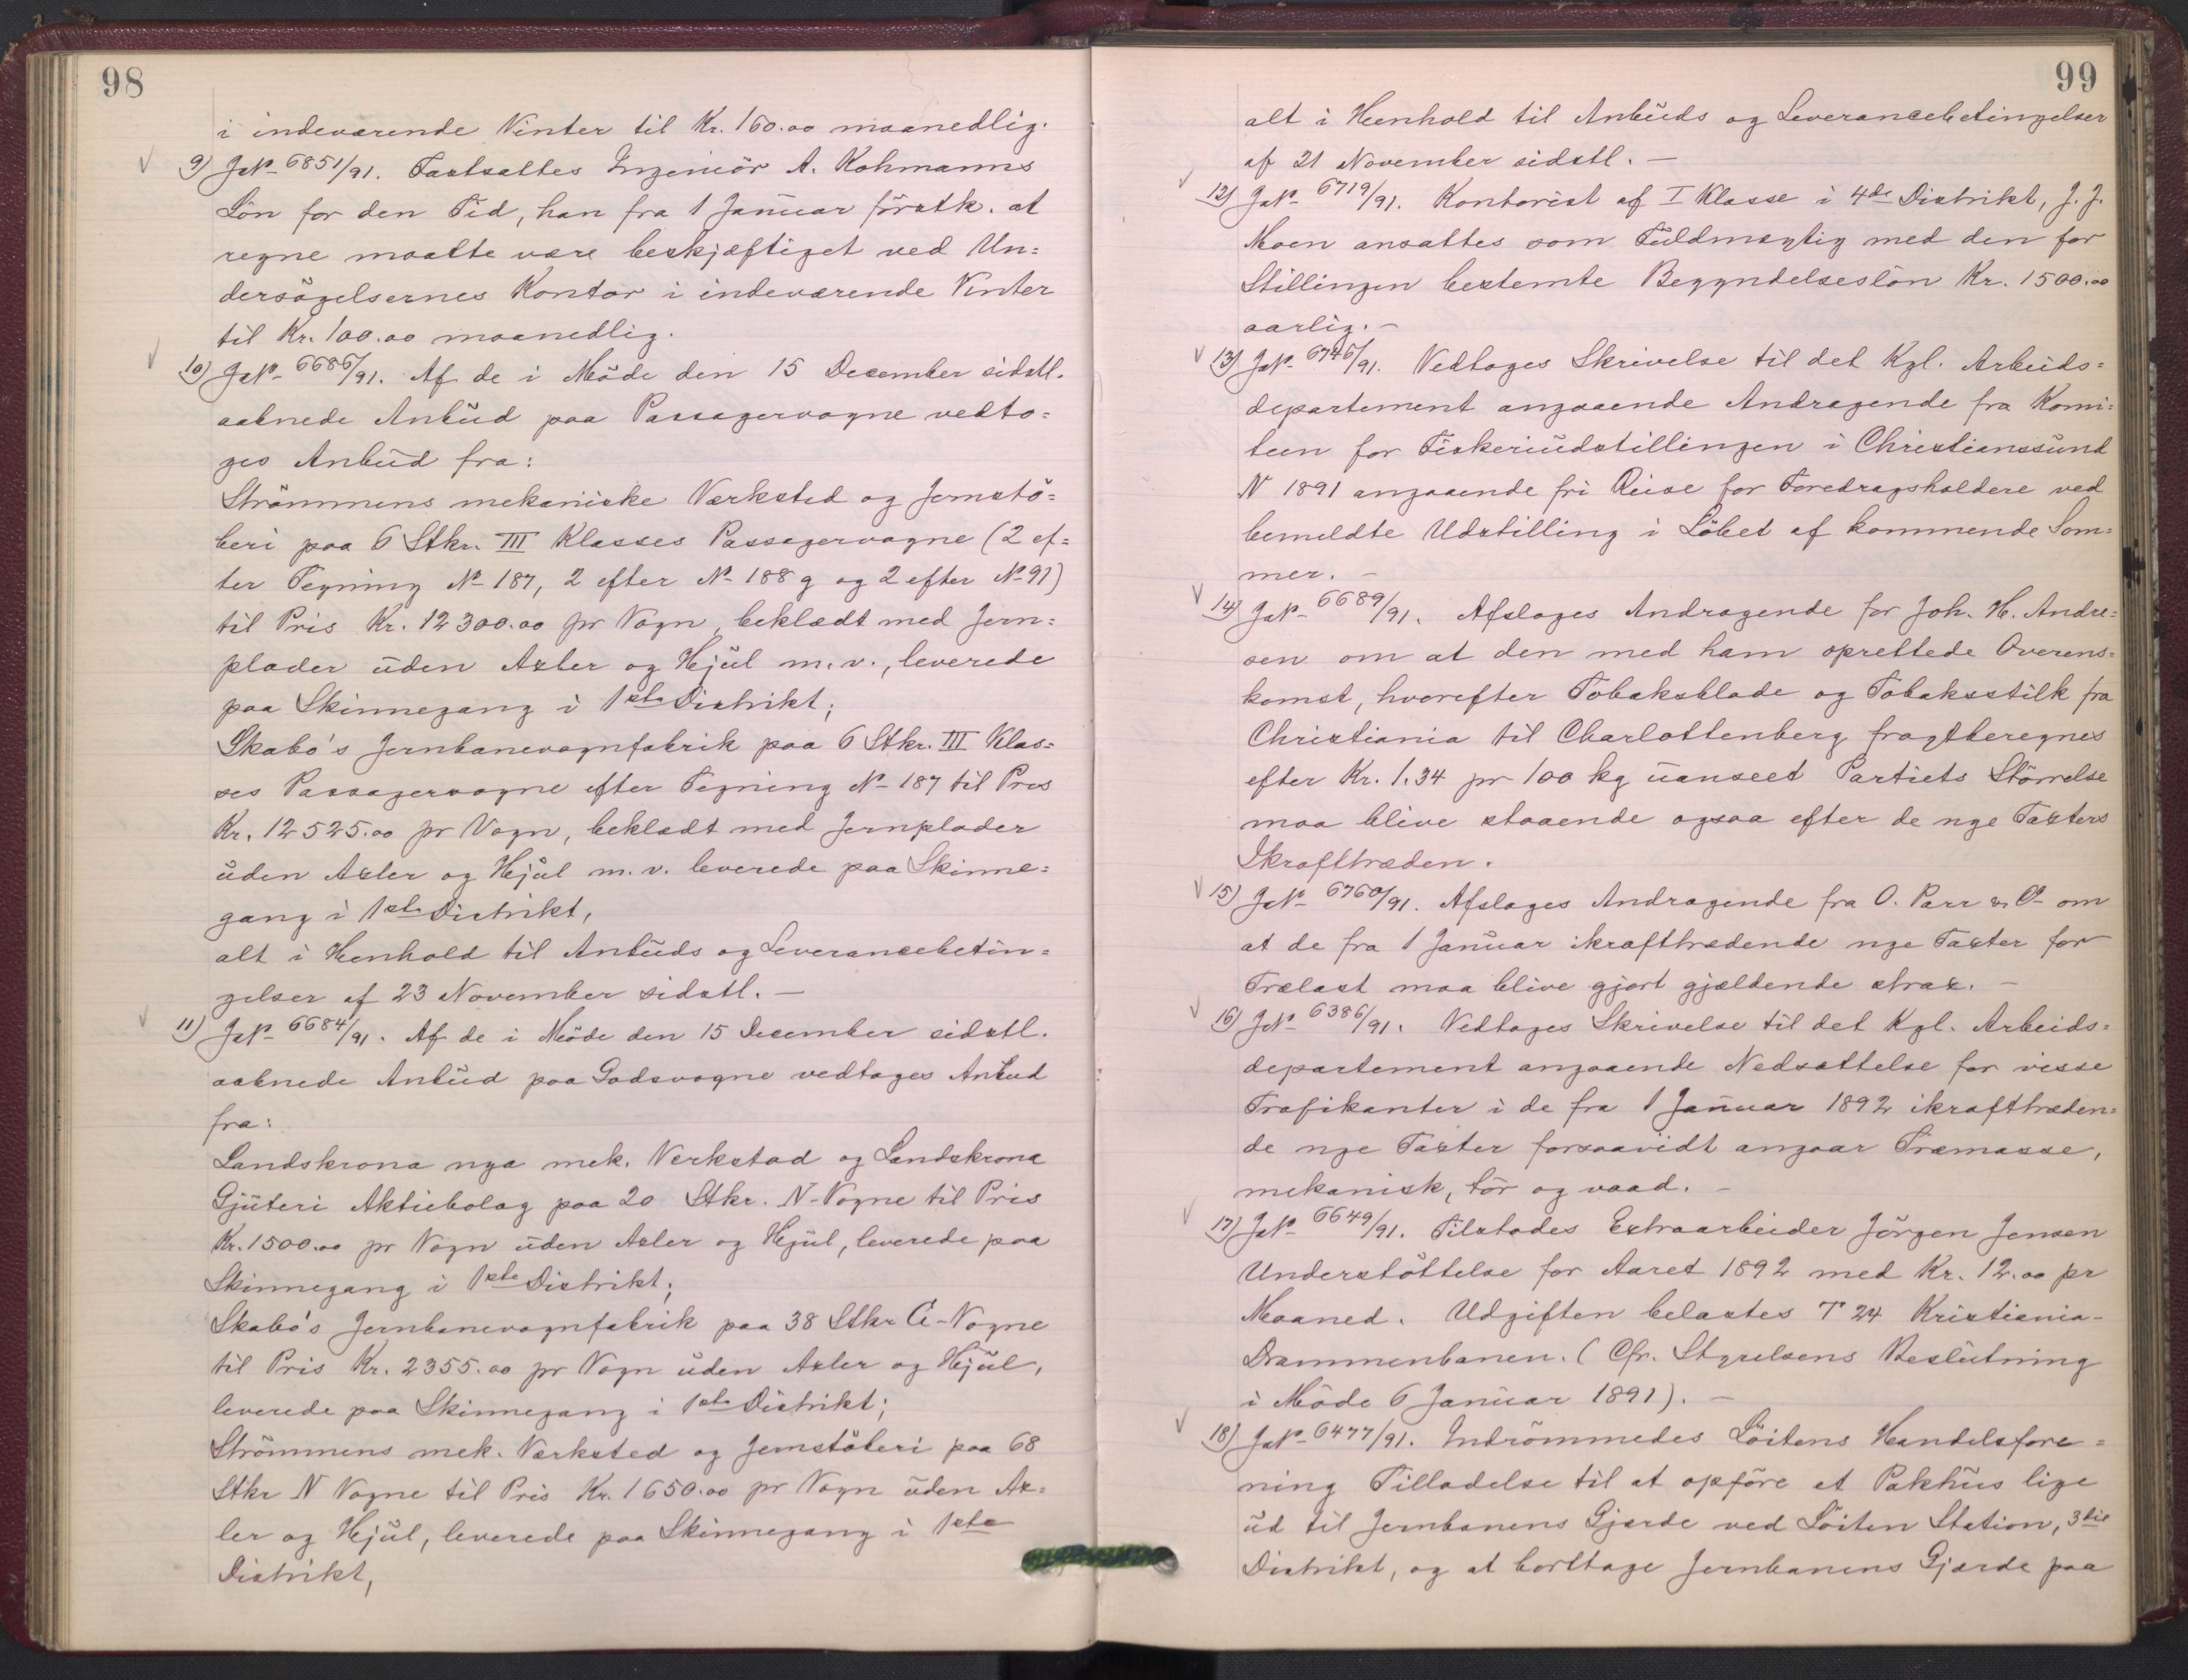 98
i indeværende Vinter til Kr. 160.00 maanedlig.
9) JNo 6851/91. Fastsattes Ingeniör A. Kohmanns
Lön for den Tid, han fra 1 Januar förstk. at
regne maatte være beskjæftiget ved Un=
dersögelsernes Kontor i indeværende Vinter
til Kr. 100.00 maanedlig.
10) JNo 6686/91. Af de i Möde den 15 December sidstl.
aabnede Anbud paa Passagervogne vedto=
ges Anbud fra:
Strömmens mekaniske Værksted og Jernstö=
beri paa 6 Stkr. III Klasses Passagervogne (2 ef=
ter Tegning No 187, 2 efter No 188 g og 2 efter No 91)
til Pris Kr. 12300.00 pr Vogn, beklædt med Jern=
plader uden Axler og Hjul m.v., leverede
paa Skinnegang i 1ste Distrikt;
Skabo's Jernbanevognfabrik paa 6 Stkr. III Klas=
ses Passagervogne efter Tegning No 187 til Pris
Kr. 12525.00 pr Vogn, beklædt med Jernplader
uden Axler og Hjul m.v. leverede paa Skinne=
gang i 1ste Distrikt,
alt i Henhold til Anbuds og Leverancebetin=
gelser af 23 November sidstl. —
11) JNo 6684/91. Af de i Möde den 15 December sidstl.
aabnede Anbud paa Godsvogne vedtages Anbud
fra:
Landskrona nya mek. Verkstad og Landskrona
Gjuteri Aktiebolag paa 20 Stkr. N-Vogne til Pris
Kr. 1500.00 pr Vogn uden Axler og Hjul, leverede paa
Skinnegang i 1ste Distrikt;
Skabo's Jernbanevognfabrik paa 38 Stkr G-Vogne
til Pris Kr. 2355.00 pr Vogn uden Axler og Hjul,
leverede paa Skinnegang i 1ste Distrikt;
Strömmens mek. Værksted og Jernstöberi paa 68
Stkr N Vogne til Pris Kr. 1650.00 pr Vogn uden Ax=
ler og Hjul, leverede paa Skinnegang i 1ste
Distrikt,
99
alt i Henhold til Anbuds og Leverancebetingelser
af 21 November sidstl. —
12) JNo 6719/91. Kontorist af I Klasse i 4de Distrikt, J. J.
Moen ansattes som Fuldmægtig med den for
Stillingen bestemte Begyndelseslön Kr. 1500.00
aarlig. —
13) JNo 6746/91. Vedtoges Skrivelse til det Kgl. Arbeids=
departement angaaende Andragende fra Komi=
teen for Fiskeriudstillingen i Christianssund
N 1891 angaaende fri Reise for Foredragsholdere ved
bemeldte Udstilling i Löbet af kommende Som=
mer. —
14) JNo 6689/91. Afsloges Andragende for Joh. H. Andre=
sen om at den med ham oprettede Overens=
komst, hvorefter Tobaksblade og Tobaksstilk fra
Christiania til Charlottenberg fragtberegnes
efter Kr. 1.34 pr 100 kg uanseet Partiets Störrelse
maa blive staaende ogsaa efter de nye Taxters
Ikrafttræden.
15) JNo 6760/91. Afsloges Andragende fra O. Parr & Co om
at de fra 1 Januar ikrafttrædende nye Taxter for
Trælast maa blive gjort gjældende strax. —
16) JNo 6386/91. Vedtoges Skrivelse til det Kgl. Arbeids=
departement angaaende Nedsættelse for visse
Trafikanter i de fra 1 Januar 1892 ikrafttræden=
de nye Taxter forsaavidt angaar Træmasse,
mekanisk, tör og vaad. —
17) JNo 6649/91. Tilstodes Extraarbeider Jörgen Jensen
Understöttelse for Aaret 1892 med Kr. 12.00 pr
Maaned. Udgiften belastes T 24 Kristiania-
Drammenbanen. (Cfr. Styrelsens Beslutning
i Möde 6 Januar 1891). —
18) JNo 6477/91. Indrömmedes Löitens Handelsfore=
ning Tilladelse til at opföre et Pakhus lige
ud til Jernbanens Gjærde ved Löiten Station, 3die
Distrikt, og at borttage Jernbanens Gjærde paa